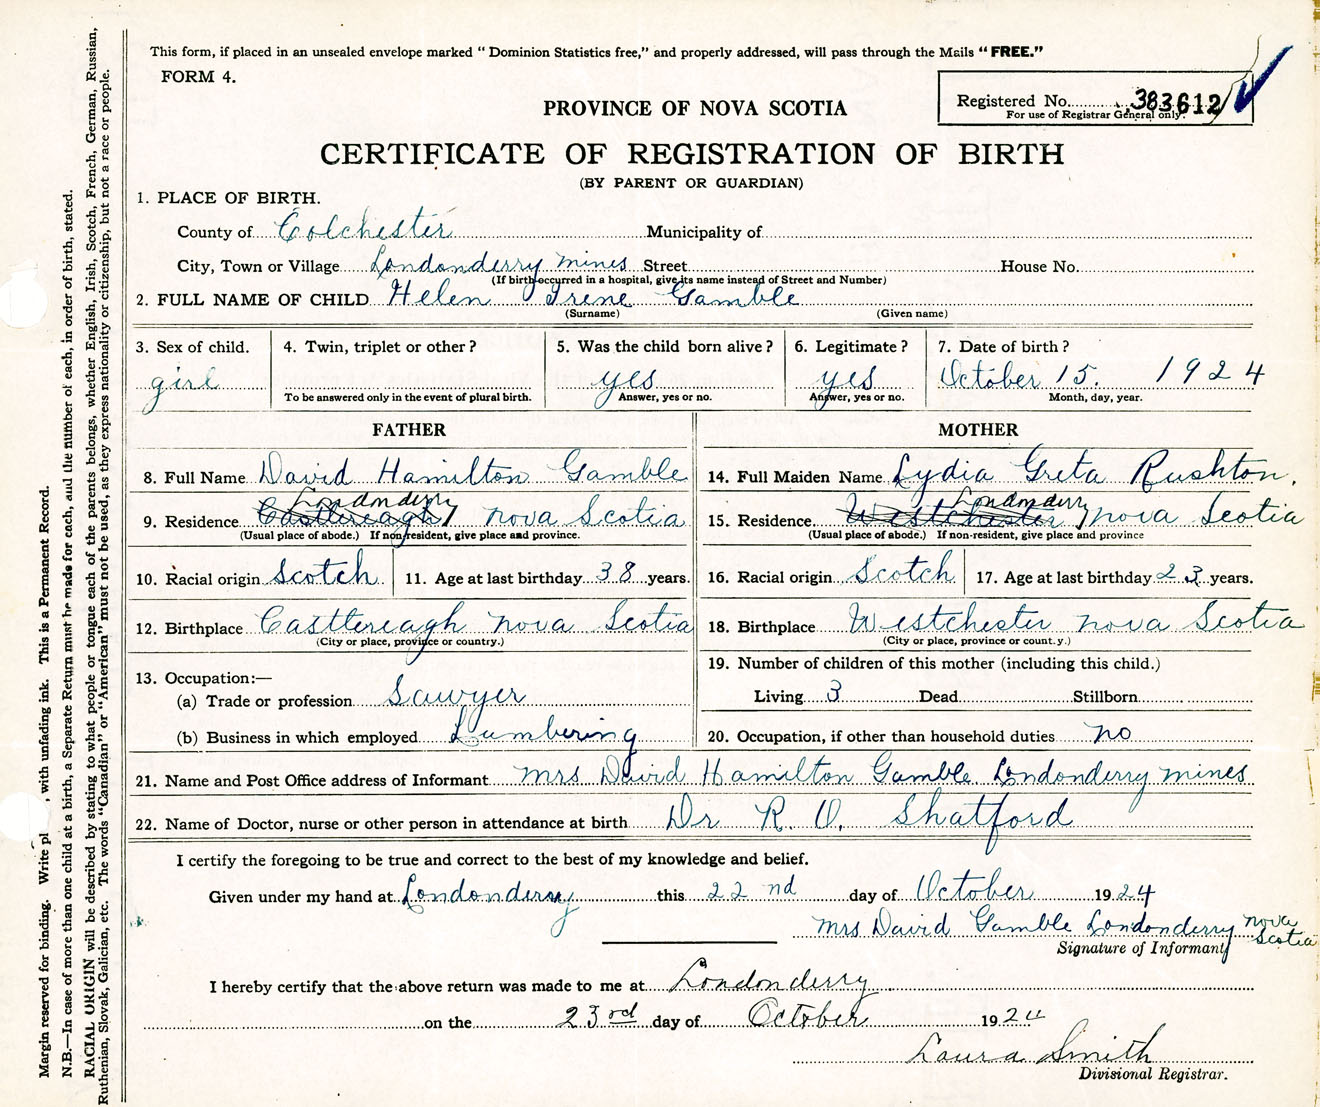 This form, if placed in an unsealed envelope marked “ Dominion Statistics free,” and properly addressed, will pass through the Mails “ FREE.”
FORM 4.
Registered No. 383612
For use of Registrar General only.
PROVINCE OF NOVA SCOTIA
CERTIFICATE OF REGISTRATION OF BIRTH
(BY PARENT OR GUARDIAN)
1. PLACE OF BIRTH.
County of Colchester Municipality of
City, Town or Village Londonderry mines Street House No.
(If birth occurred in a hospital, give its name instead of Street and Number)
2. FULL NAME OF CHILD Helen Irene Gamble
(Surname) (Given name)
3. Sex of child. 4. Twin, triplet or other ? 5. Was the child born alive ? 6. Legitimate ? 7. Date of birth ?
girl yes yes October 15. 1924
To be answered only in the event of plural birth. Answer, yes or no. Answer, yes or no. Month, day, year.
FATHER MOTHER
8. Full Name David Hamilton Gamble 14. Full Maiden Name Lydia Greta Rushton.
Londonderry Londonderry
9. Residence Castlereagh nova Scotia 15. Residence Westchester nova Scotia
(Usual place of abode.) If non-resident, give place and province. (Usual place of abode.) If non-resident, give place and province
10. Racial origin Scotch 11. Age at last birthday 38 years. 16. Racial origin Scotch 17. Age at last birthday 23 years.
12. Birthplace Castlereagh nova Scotia 18. Birthplace Westchester nova Scotia
(City or place, province or country.) (City or place, province or count.y.)
13. Occupation:— 19. Number of children of this mother (including this child.)
(a) Trade or profession Sawyer Living 3 Dead Stillborn
(b) Business in which employed Lumbering 20. Occupation, if other than household duties no
21. Name and Post Office address of Informant mrs David Hamilton Gamble Londonderry mines
22. Name of Doctor, nurse or other person in attendance at birth Dr R. O. Shatford
I certify the foregoing to be true and correct to the best of my knowledge and belief.
Given under my hand at Londonderry this 22 nd day of October 1924
mrs David Gamble Londonderry nova Scotia
Signature of Informant
I hereby certify that the above return was made to me at Londonderry
on the 23rd day of October 1924
Laura Smith
Divisional Registrar.
Margin reserved for binding. Write pl , with unfading ink. This is a Permanent Record.
N.B.—In case of more than one child at a birth, a Separate Return must be made for each, and the number of each, in order of birth, stated.
RACIAL ORIGIN will be described by stating to what people or tongue each of the parents belongs, whether English, Irish, Scotch, French, German, Russian,
Ruthenian, Slovak, Galician, etc. The words “Canadian” or “American” must not be used, as they express nationality or citizenship, but not a race or people.